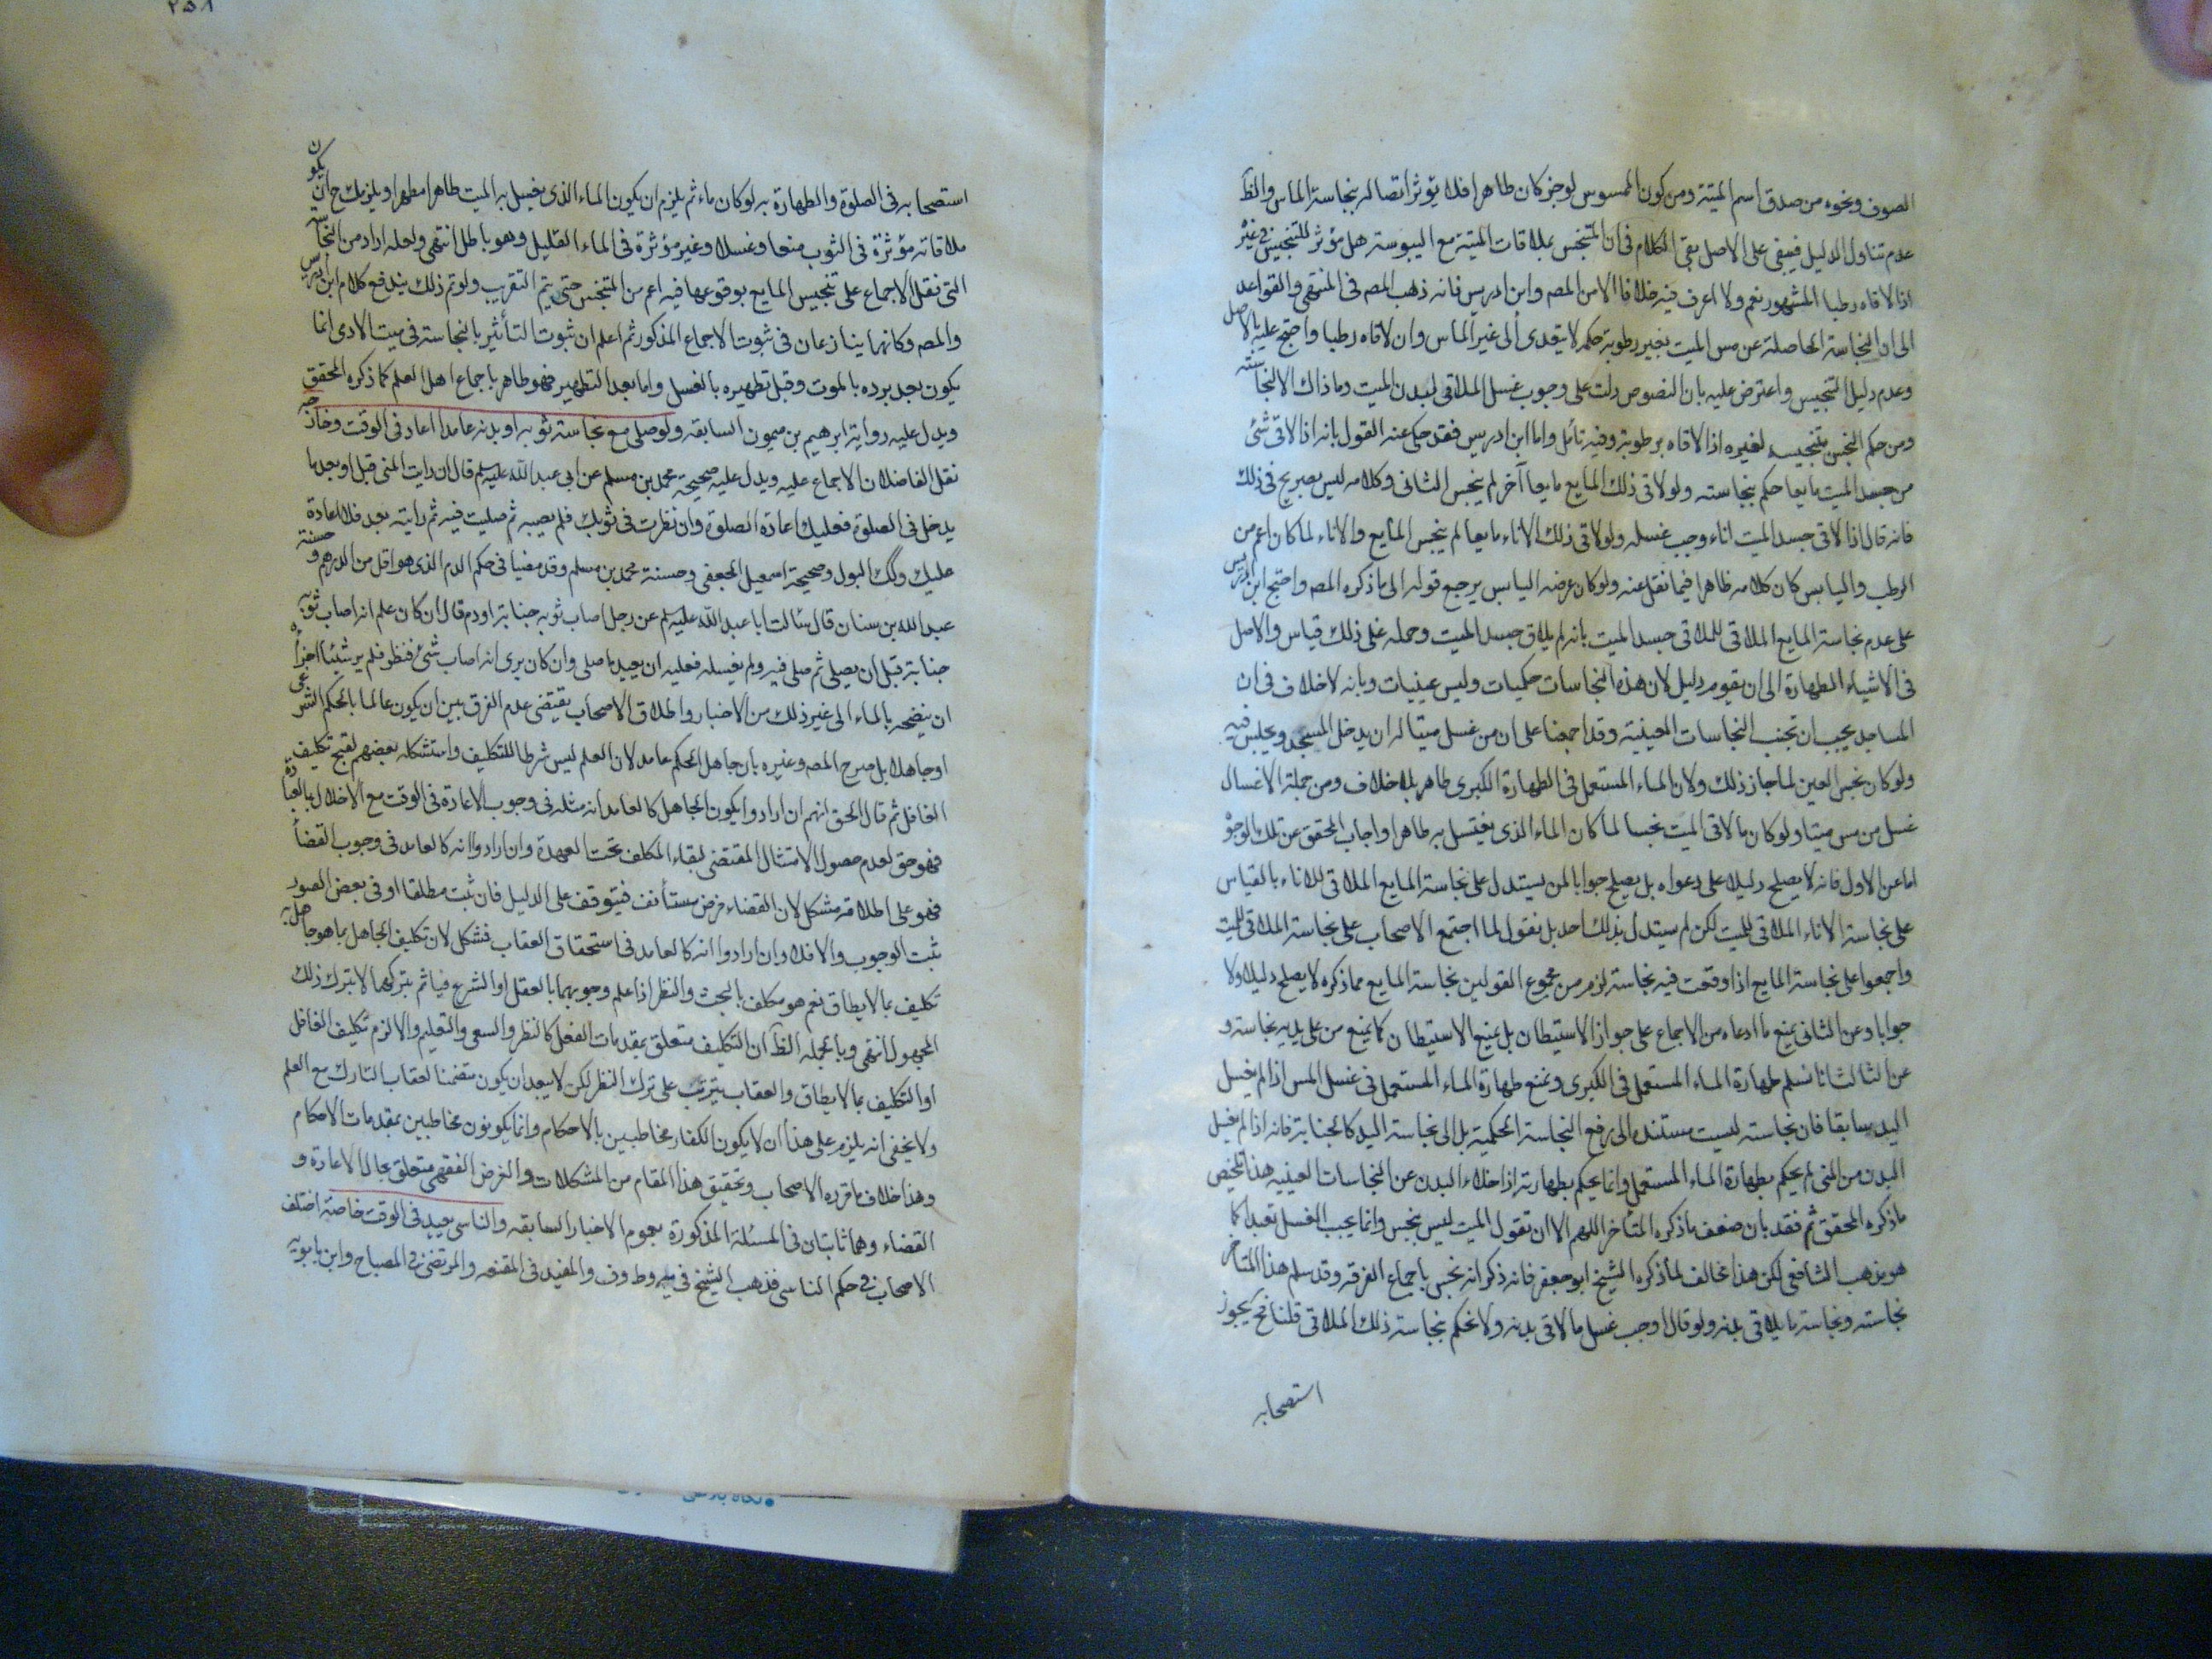 الصوف ونحوه من صدق اسم الميتة ومن كون الممسوس لوجز كان طاهرا فلا يؤثر اتصاله بنجاسة الماس والظ
عدم تناول الدليل فيبقى على الاصل بقى الكلام فى ان المتنجس بملاقات الميتة مع اليبوسة هل مؤثر للتنجيس فى غيره
اذا لاقاه رطبا المشهور نعم ولا اعرف فيه خلافا الا من المصه وابن ادريس فانه ذهب المصه فى المنتهى والقواعد
الى ان النجاسة الحاصلة عن مس الميت بغير رطوبة حكمه لا يتعدى الى غير الماس وان لاقاه رطبا واحتج عليه بالاصل
وعدم دليل التنجيس واعترض عليه بان النصوص دلت على وجوب غسل الملاقى لبدن الميت وما ذاك الا لنجاسته
ومن حكم النجس تنجيسه لغيره اذا لاقاه برطوبة وفيه تأمل واما ابن ادريس فقد حكى عنه القول بانه اذا لاقى شئ
من جسد الميت مايعا حكم بنجاسته ولو لاقى ذلك المايع مايعا آخر لم ينجس الثانى وكلامه ليس بصريح فى ذلك
فانه قال اذا لاقى جسد الميت اناء وجب غسله ولو لاقى ذلك الاناء مايعا لم ينجس المايع والاناء لما كان اعم من
الرطب واليابس كان كلامه ظاهرا فيما نقل عنه ولو كان غرضه اليابس يرجع قوله الى ما ذكره المصه واحتج ابن ادريس
على عدم نجاسة المايع الملاقى للملاقى جسد الميت بانه لم يلاق جسد الميت وحمله على ذلك قياس والاصل
فى الاشياء الطهارة الى ان يقوم دليل لان هذه النجاسات حكميات وليس عينيات وبانه لا خلاف فى ان
المساجد يجب ان تجنب النجاسات العينية وقد اجمعنا على ان من غسل ميتا له ان يدخل المسجد ويجلس فيه
ولو كان نجس العين لما جاز ذلك ولان الماء المستعمل فى الطهارة الكبرى طاهر بلا خلاف ومن جملة الاغسال
غسل من مس ميتا ولو كان ما لاقى الميت نجسا لما كان الماء الذى يغتسل به طاهرا واجاب المحقق عن تلك الوجوه
اما عن الاول فانه لا يصلح دليلا على دعواه بل يصلح جوابا لمن يستدل على نجاسة المايع الملاقى للاناء بالقياس
على نجاسة الاناء الملاقى للميت لكن لم يستدل بذلك احد بل نقول لما اجتمع الاصحاب على نجاسة الملاقى للميت
واجمعوا على نجاسة المايع اذا وقعت فيه نجاسة لزم من مجموع القولين نجاسة المايع مما ذكره لا يصلح دليلا ولا
جوابا وعن الثانى بمنع ما ادعاه من الاجماع على جواز الاستيطان بل يمنع الاستيطان كما يمنع من على يديه نجاسة و
عن الثالث انا نسلم طهارة الماء المستعمل فى الكبرى ونمنع طهارة الماء المستعمل فى غسل المس اذا لم يغسل
اليد سابقا فان نجاسته ليست مستنده الى رفع النجاسة الحكمية بل الى نجاسة اليد كالجنابة فانه اذا لم يغسل
البدن من المنى لم يحكم بطهارة الماء المستعمل وانما يحكم بطهارته اذا خلاء البدن عن النجاسات العينيه هذا تلخيص
ما ذكره المحقق ثم فقد بان ضعف ما ذكره المتأخر اللهم الا ان تقول الميت ليس بنجس وانما يجب الغسل تعبدا كما
هو مذهب الشافعى لكن هذا مخالف لما ذكره الشيخ ابو جعفر فانه ذكر انه نجس باجماع الفرقه وقد سلم هذا المتاخر
نجاسته ونجاسة ما يلاقى بدنه ولو قال اوجب غسل ما لاقى بدنه ولا نحكم بنجاسة ذلك الملاقى قلنا فح يجوز
استصحابه
٢٥٨
استصحابه فى الصلوة والطهارة به لو كان ماء ثم يلزم ان يكون الماء الذى يغسل به الميت طاهرا مطهرا ويلزمك ح ان يكون
ملاقاته مؤثرة فى الثوب منعا وغسلا وغير مؤثرة فى الماء القليل وهو باطل انتهى ولعله اراد من النجاسة
التى نقل الاجماع على تنجيس المايع بوقوعها فيه اعم من المتنجس حتى يتم التقريب ولو تم ذلك يندفع كلام ابن ادريس
والمصه وكانهما ينازعان فى ثبوت الاجماع المذكور ثم اعلم ان ثبوت التأثير بالنجاسة فى ميت الادمى انما
يكون بعد برده بالموت وقبل تطهيره بالغسل واما بعد التطهير فهو طاهر باجماع اهل العلم كما ذكره المحقق
ويدل عليه رواية ابرهيم بن ميمون السابقه ولو صلى مع نجاسة ثوبه او بدنه عامدا اعاد فى الوقت وخارجه
نقل الفاضلان الاجماع عليه ويدل عليه صحيحة محمد بن مسلم عن ابى عبد الله عليه سلم قال ان رايت المنى قبل او بعد ما
يدخل فى الصلوة فعليك اعادة الصلوة وان نظرت فى ثوبك فلم يصبه ثم صليت فيه ثم رايته بعد فلا اعادة
عليك وكك البول وصحيحة اسمعيل الجعفى وحسنة محمد بن مسلم وقد مضيا فى حكم الدم الذى هو اقل من الدرهم و حسنة
عبد الله بن سنان قال سئالت ابا عبد الله عليه سلم عن رجل اصاب ثوبه جنابة او دم قال ان كان علم انه اصاب ثوبه
جنابة قبل ان يصلى ثم صلى فيه ولم يغسله فعليه ان يعيد ما صلى وان كان يرى انه اصاب شئ فنظر فلم ير شيئا اجزأه
ان ينضحه بالماء الى غير ذلك من الاخبار واطلاق الاصحاب يقتضى عدم الفرق بين ان يكون عالما بالحكم الشرعى
او جاهلا بل صرح المصه وغيره بان جاهل الحكم عامد لان العلم ليس شرطا للتكليف واستشكله بعضهم لقبح تكليف
الغافل ثم قال الحق انهم ان ارادوا بكون الجاهل كالعامد انه مثله فى وجوب الاعادة فى الوقت مع الاخلال بالعبادة
فهو حق لعدم حصول الامتثال المقتضى لبقاء المكلف تحت العهدة وان ارادوا انه كالعامد فى وجوب القضأ
فهو على اطلاقه مشكل لان القضاء فرض مستأنف فيتوقف على الدليل فان ثبت مطلقا او فى بعض الصور
ثبت الوجوب والا فلا وان ارادوا انه كالعامد فى استحقاق العقاب فشكل لان تكليف الجاهل بما هو جاهل به
تكليف بما لا يطاق نعم هو مكلف بالبحث والنظر اذا علم وجوبهما بالعقل او الشرع فياثم بتركهما لا بترك ذلك
المجهول انتهى وبالجمله الظ ان التكليف متعلق بمقدمات الفعل كالنظر والسعى والتعليم والا لزم تكليف الغافل
او التكليف بما لا يطاق والعقاب يترتب على ترك النظر لكن لا يبعد ان يكون متضمنا لعقاب التارك مع العلم
ولا يخفى انه يلزم على هذا ان لا يكون الكفار مخاطبين بالاحكام وانما يكونون مخاطبين بمقدمات الاحكام
وهذا خلاف ما قرره الاصحاب وتحقيق هذا المقام من المشكلات والغرض الفقهى متعلق بحال الاعادة و
القضاء وهما ثابتان فى المسئلة المذكورة بعموم الاخبار السابقه والناسى يعيد فى الوقت خاصة اختلف
الاصحاب فى حكم الناسى فذهب الشيخ فى يه وط وف والمفيد فى المقنعه والمرتضى فى المصباح وابن بابويه